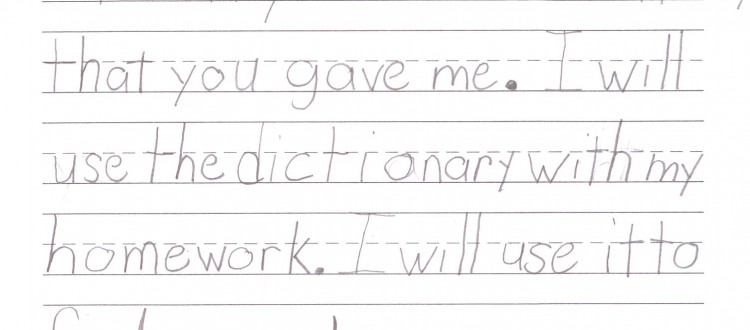 that you gave me. I will
use the dictionary with my
homework. I will use it to